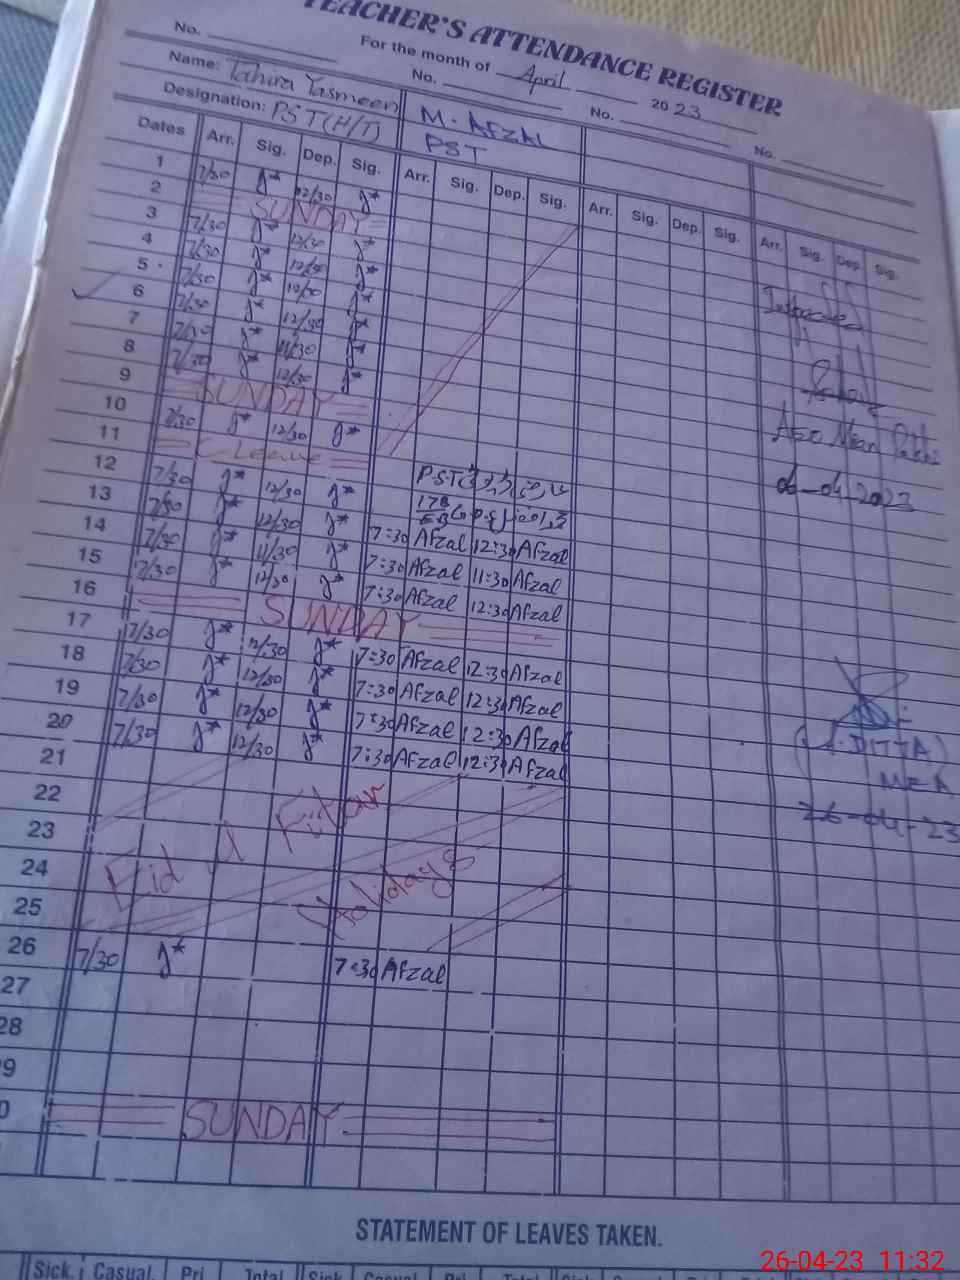 TEACHER'S ATTENDANCE REGISTER
For the month of April 2023
No. No. No. No.
Name: Tahira Yasmeen M. AFZAL
Designation: PST(H/T) PST
Dates Arr. Sig. Dep. Sig. Arr. Sig. Dep. Sig. Arr. Sig. Dep. Sig. Arr. Sig. Dep. Sig.
1 7/30 12/30
2 SUNDAY
3 7/30 12/30
4 7/30 12/30
5 7/30 12/30
6 7/30 12/30
7 7/30 11/30
8 7/30 12/30
9 SUNDAY
10 7/30 12/30
11 C Leave
12 7/30 12/30 PST
13 7/30 12/30 178
14 7/30 11/30 7:30 Afzal 12:30 Afzal
15 7/30 12/30 7:30 Afzal 11:30 Afzal
7:30 Afzal 12:30 Afzal
16 SUNDAY
17 7/30 12/30 7:30 Afzal 12:30 Afzal
18 7/30 12/30 7:30 Afzal 12:30 Afzal
19 7/30 12/30 7:30 Afzal 12:30 Afzal
20 7/30 12/30 7:30 Afzal 12:30 Afzal
21
22
23
24
25
Eid ul Fitar
Holidays
26 7/30 7:30 Afzal
27
28
9
0 SUNDAY
Inspected
06-04-2023
DITTA)
MEA
26-04-23
STATEMENT OF LEAVES TAKEN.
Sick. Casual. Pri Total Sick Casual. Pri Total Sick Casual. Pri
26-04-23 11:32